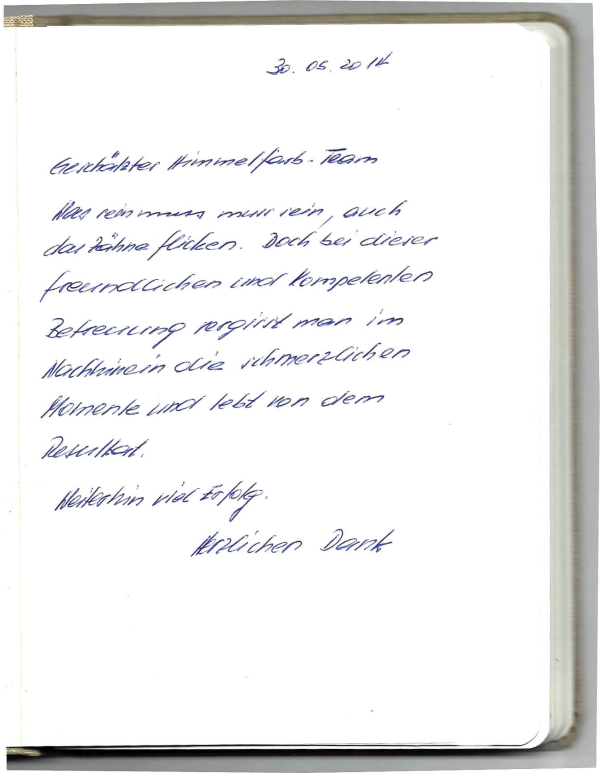 30. 05. 2014
Geschätzter Himmelfarb-Team
Was sein muss muss sein, auch
das Zähne flicken. Doch bei dieser
freundlichen und kompetenten
Betreuung vergisst man im
Nachhinein die schmerzlichen
Momente und lebt von dem
Resultat.
Weiterhin viel Erfolg.
Herzlichen Dank